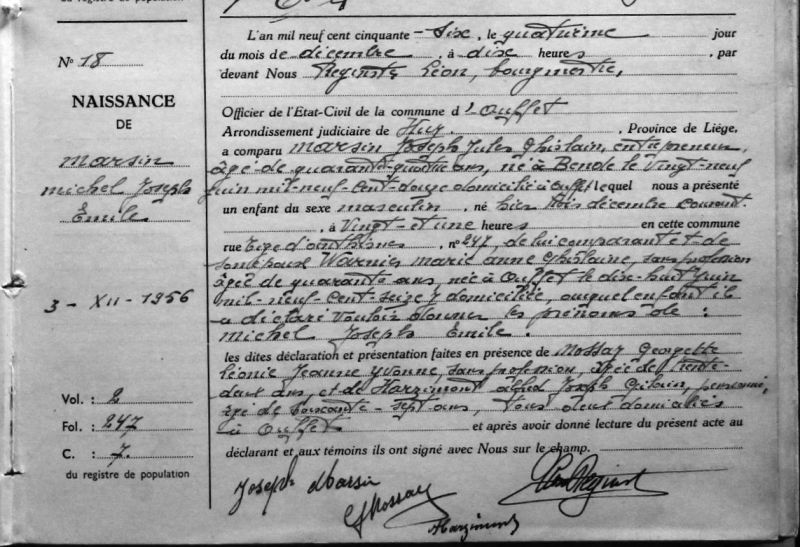 du registre de population
L'an mil neuf cent cinquante - six, le quatrième jour
du mois de décembre, à dix heures, par
devant Nous Reginster Léon, bourgmestre,
Officier de l'Etat-Civil de la commune d'Ouffet
Arrondissement judiciaire de Huy, Province de Liége,
a comparu Marsin Joseph Jules Ghislain, entrepreneur,
âgé de quarante-quatre ans, né à Bende le vingt-neuf
juin mil-neuf-cent-douze domicilié à Ouffet lequel nous a présenté
un enfant du sexe masculin, né hier trois décembre courant.
, à vingt-et-une heures en cette commune
rue Tige d'anthisnes, n° 247, de lui comparant et de
son épouse Warnier Marie Anne Ghislaine, sans profession
âgée de quarante-ans, née à Ouffet le dix-huit juin
mil-neuf-cent-seize y domiciliée, auquel enfant il
a déclaré vouloir donner les prénoms de :
Michel Joseph Emile.
les dites déclaration et présentation faites en présence de Mossay Georgette
Léonie Jeanne Yvonne, sans profession, âgée de trente-
deux ans, et de Harzimont Alfred Joseph Gilain, pensionné,
âgé de soixante-sept-ans, tous deux domiciliés
à Ouffet et après avoir donné lecture du présent acte au
déclarant et aux témoins ils ont signé avec Nous sur le champ.
Joseph Marsin
GMossay
Harzimont
Léon Reginster
N° 18
NAISSANCE
DE
Marsin
Michel Joseph
Emile
3 - XII - 1956
Vol. : 2
Fol. : 247
C. : 7
du registre de population